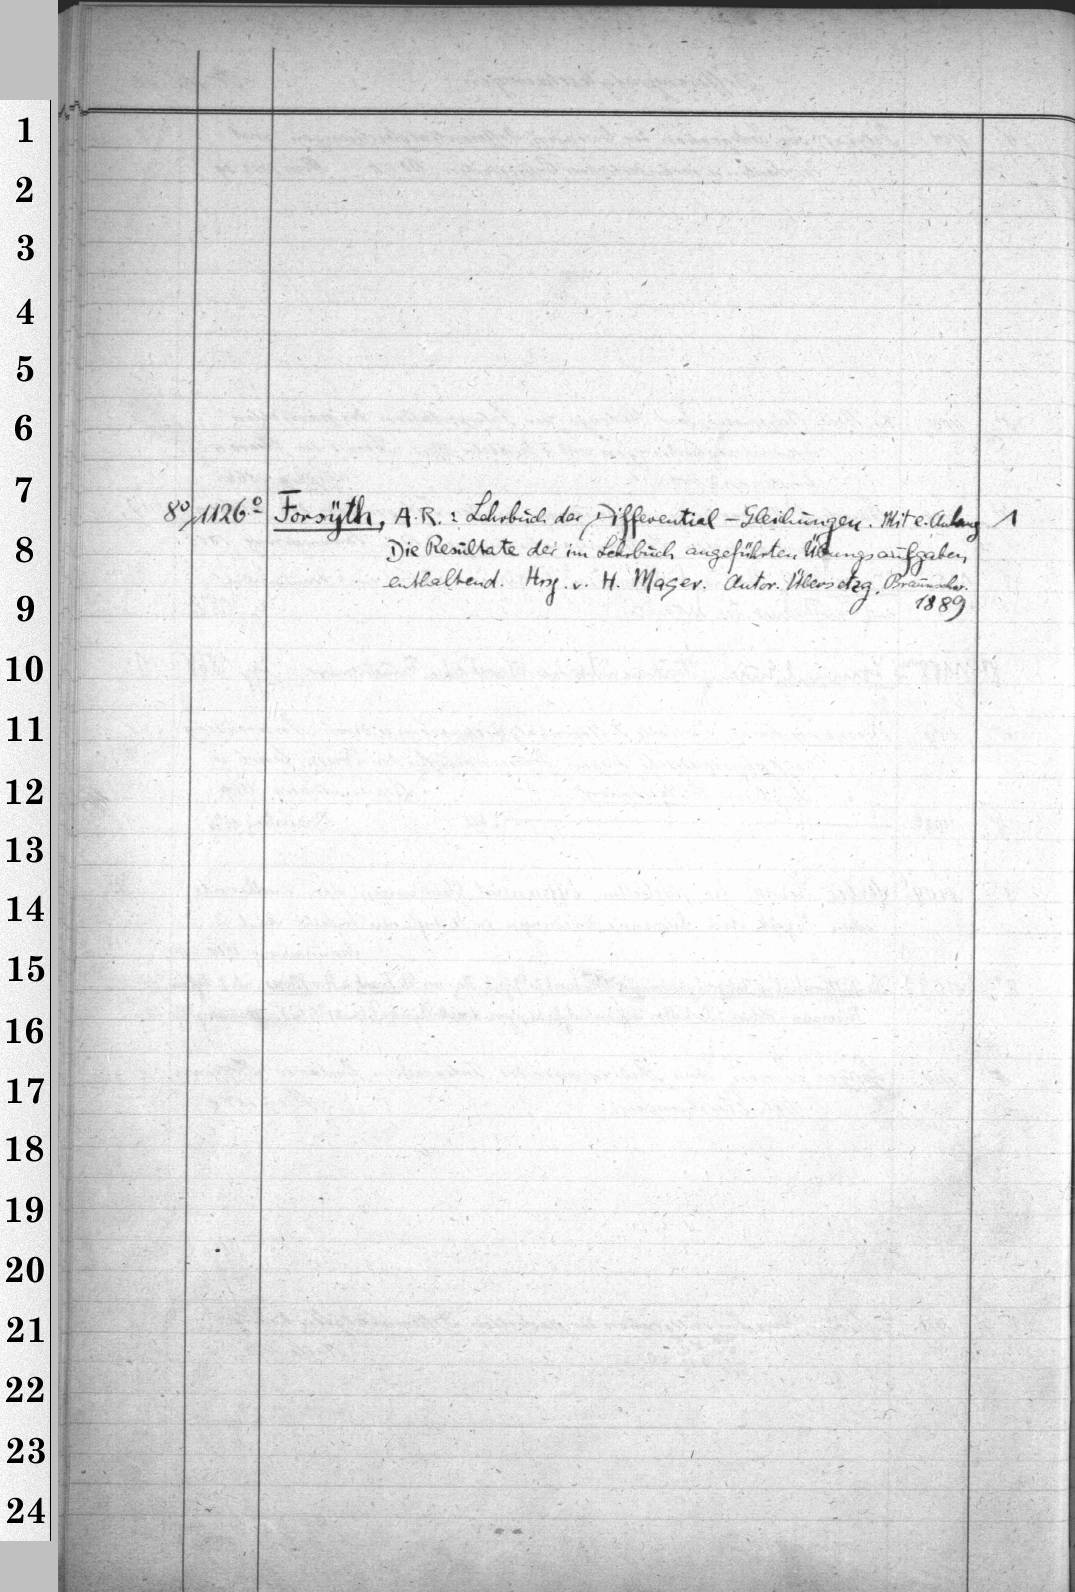 1
2
3
4
5
6
7
8
9
10
11
12
13
14
15
16
17
18
19
20
21
22
23
24
8º 1126º Forsÿth, A. R.: Lehrbuch der Differential-Gleichungen. Mit e. Anhang 1
Die Resultate der im Lehrbuch angeführten Übungsaufgaben,
enthaltend. Hrsg. v. H. Maser. Autor. Übersetzg. Braunschw.
1889